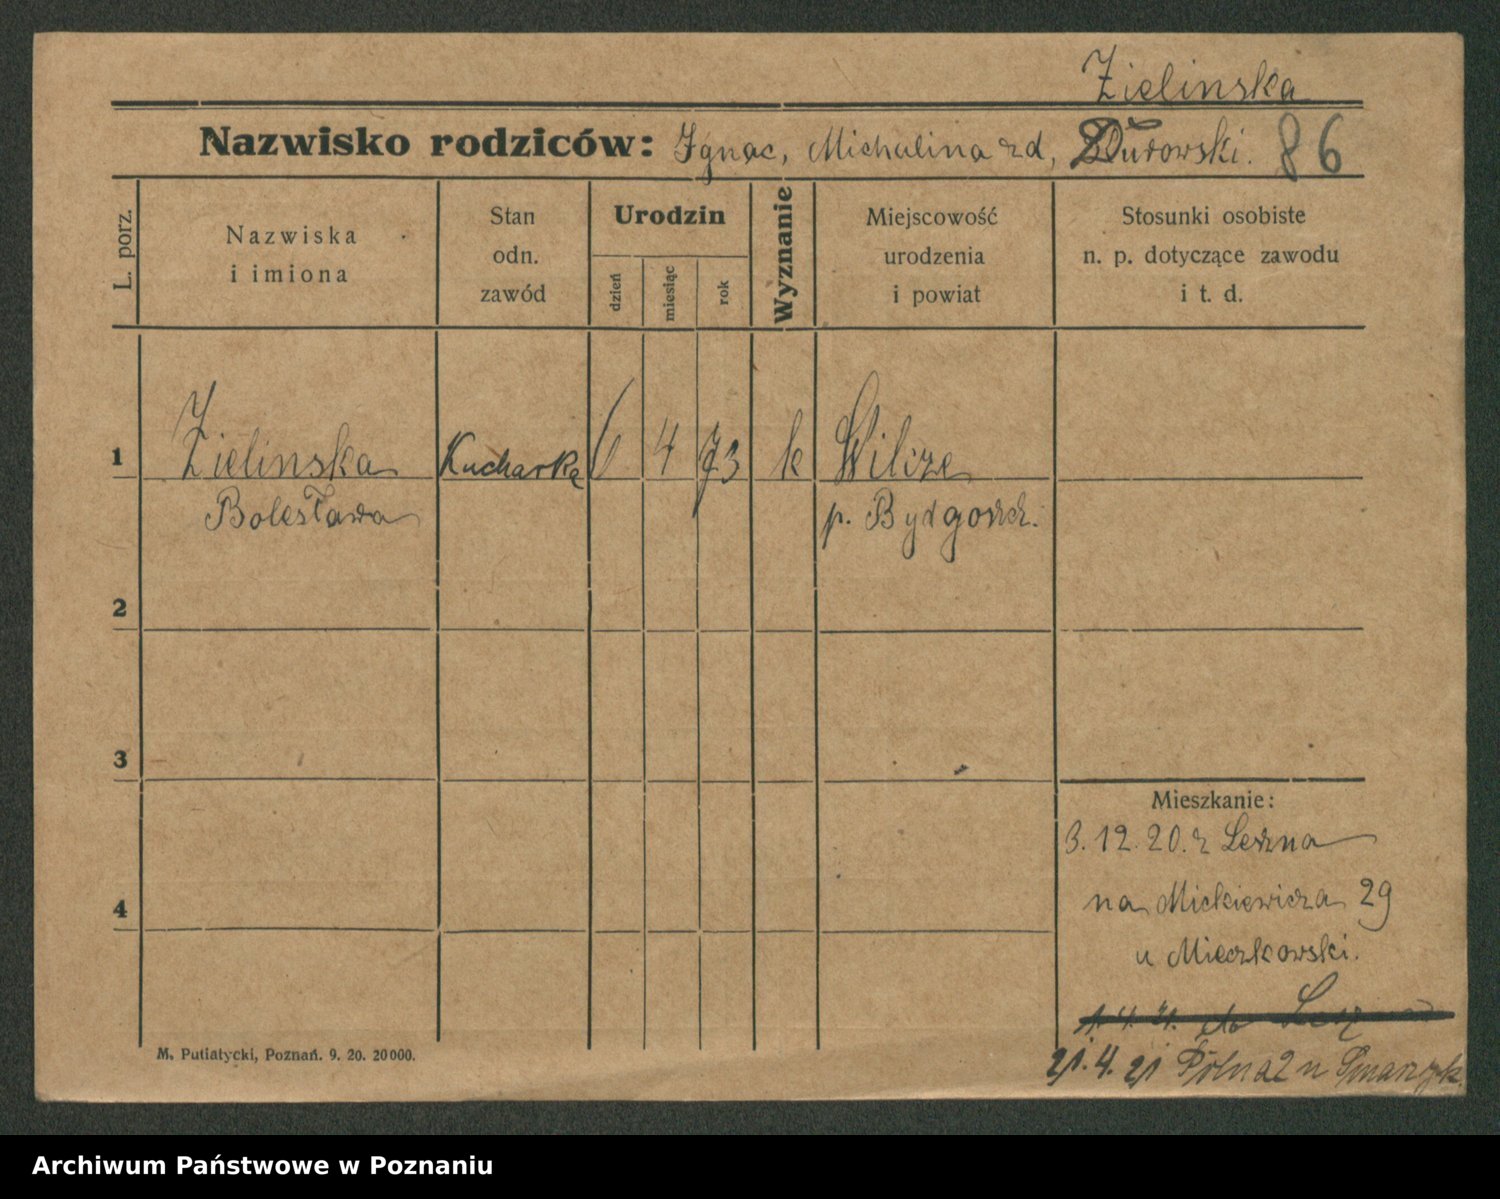 Zielinska
Nazwisko rodziców: Ignac, Michalina zd, Durowski. 86
L. porz.
Nazwiska
i imiona
Stan
odn.
zawód
Urodzin
dzień
miesiąc
rok
Wyznanie
Miejscowość
urodzenia
i powiat
Stosunki osobiste
n. p. dotyczące zawodu
i t. d.
1 Zielinska Kucharka 6 4 73 k Wilcze
Bolesława p. Bydgoszcz.
2
3
4
Mieszkanie:
3. 12. 20. z Leszna
na Mickiewicza 29
u Mieczkowski.
1. 4. 21. do
21. 4. 21 Polna 2 u
M. Putiatycki, Poznań. 9. 20. 20000.
Archiwum Państwowe w Poznaniu